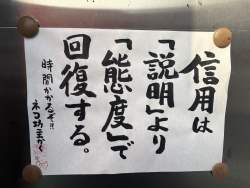 信用は
「説明」より
「態度」で
回復する。
時間かかるぞ!!
ネコ坊主が〜